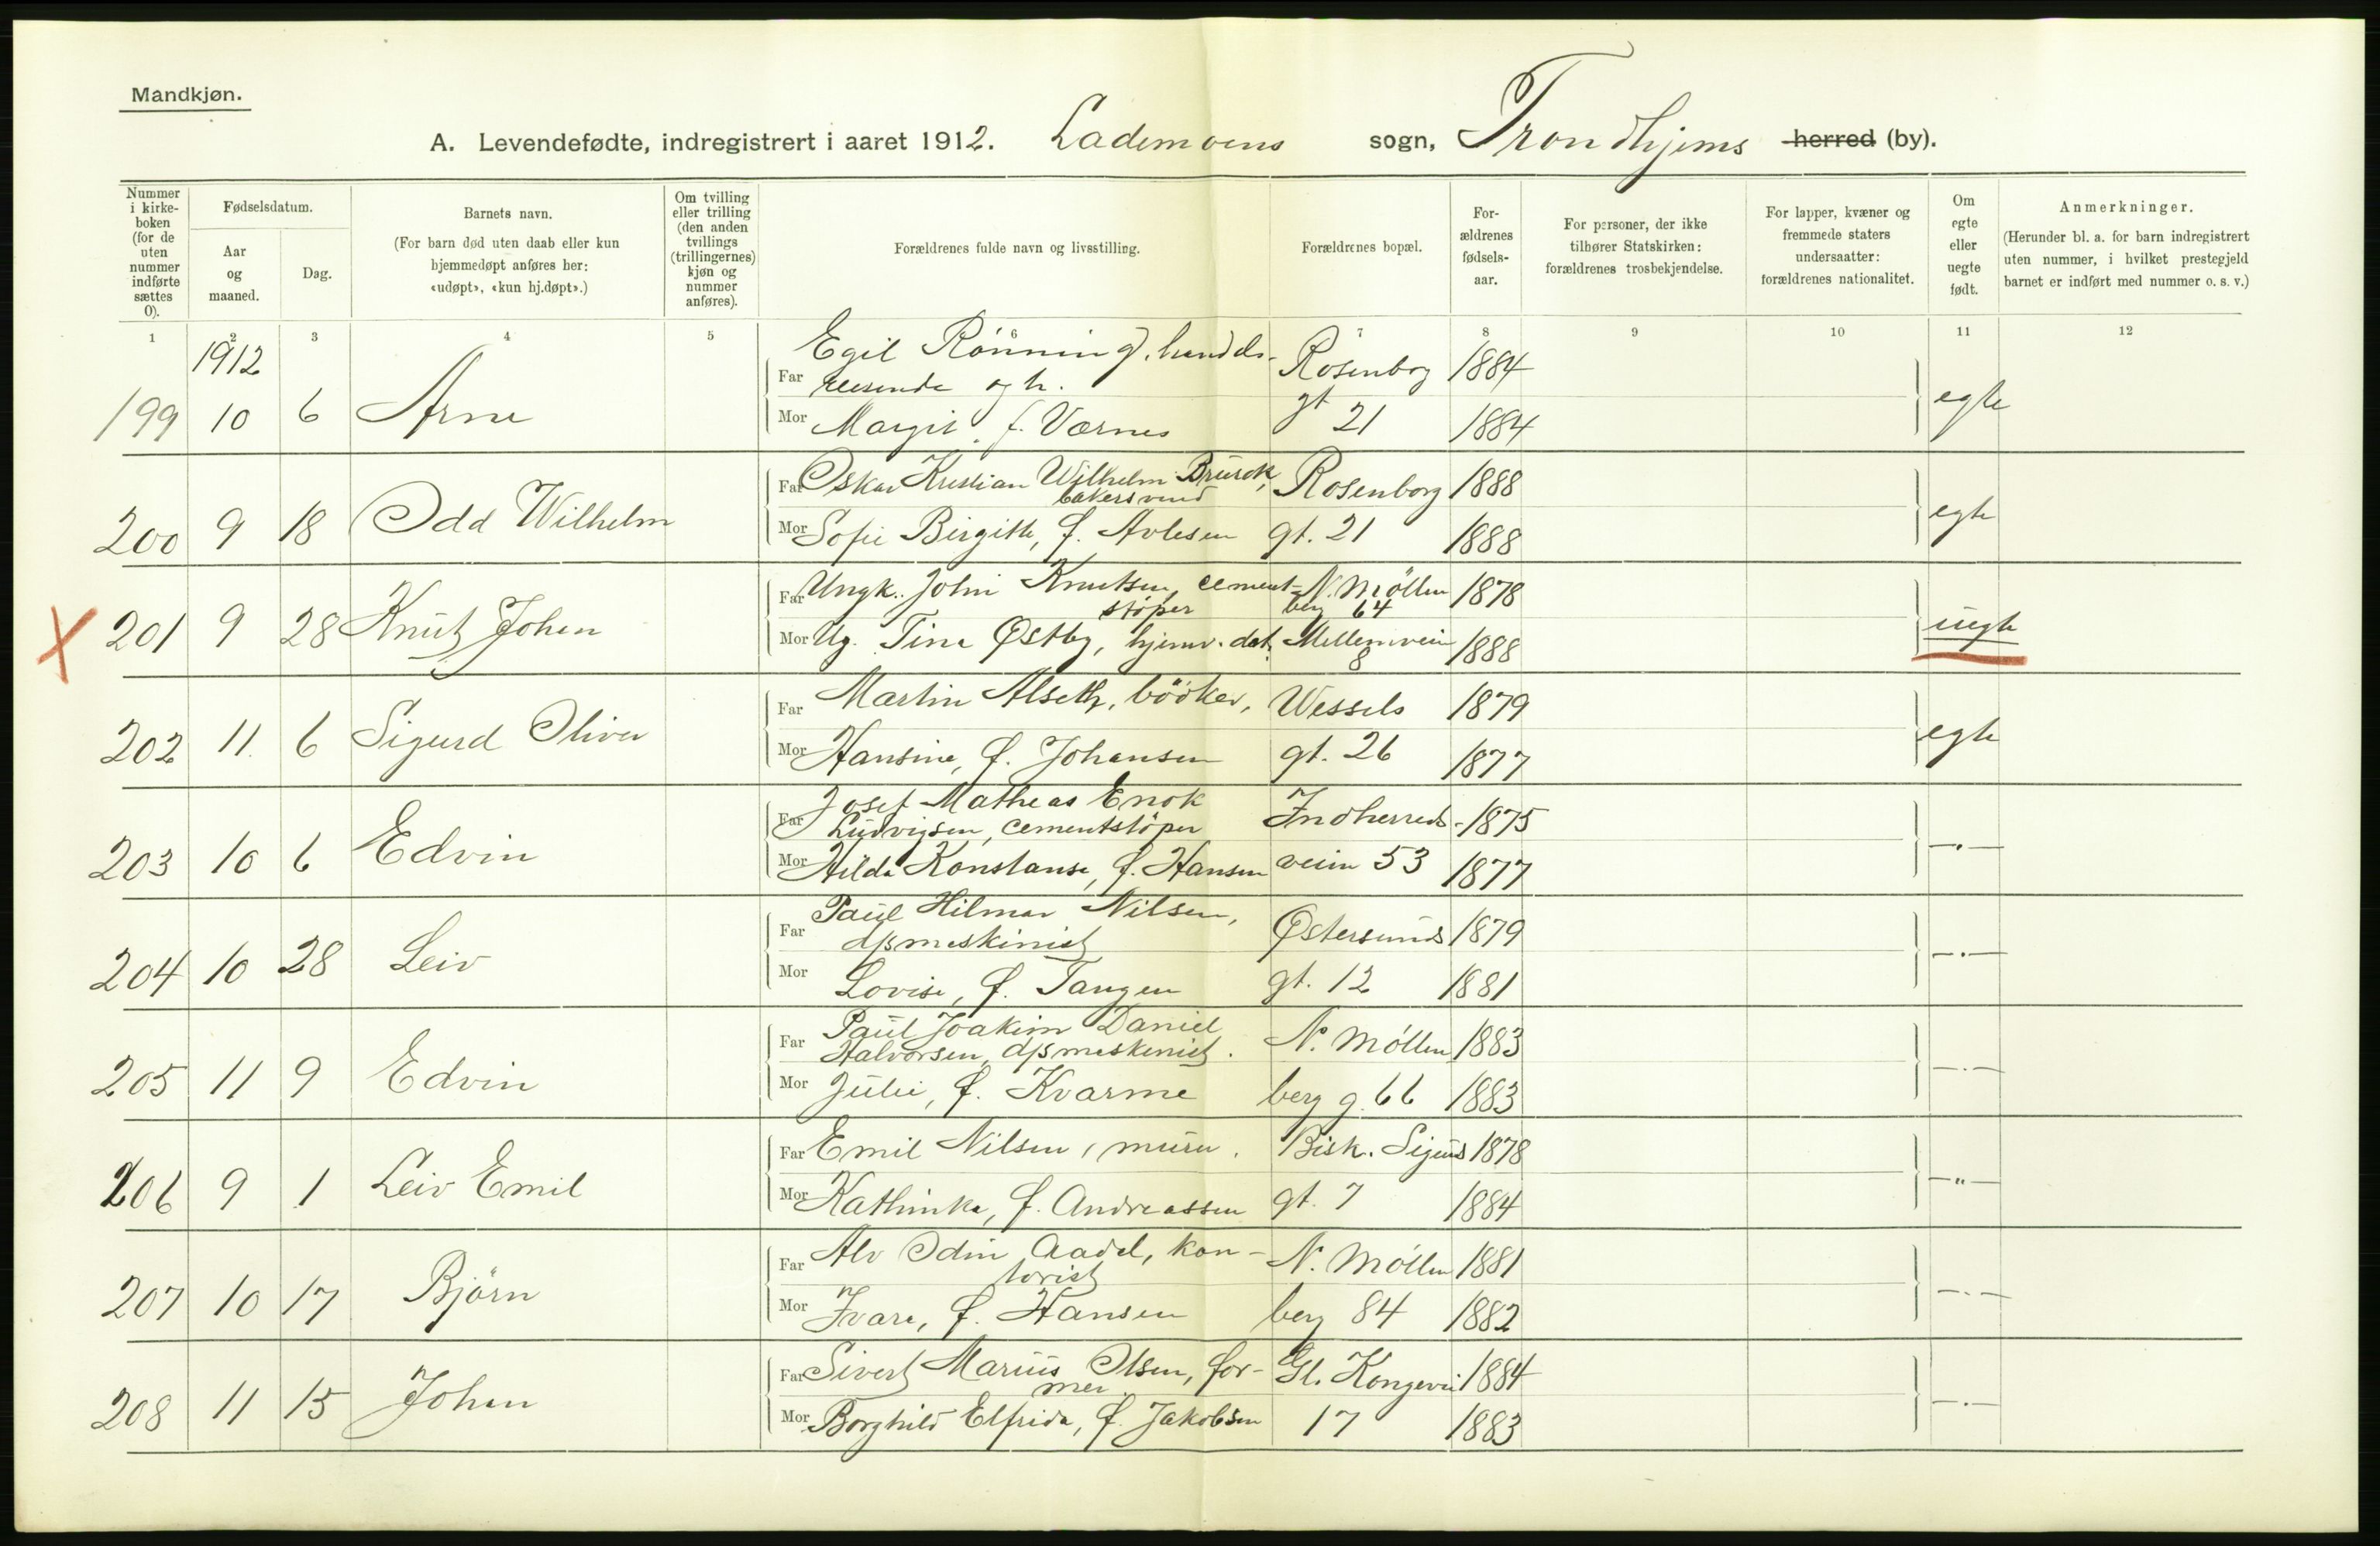 Mandkjøn.
A. Levendefødte, indregistrert i aaret 1912. Lademoens sogn, Trondhjems herred (by).
Nummer i kirke-boken (for de uten nummer indførte sættes 0).
Fødselsdatum.
Aar og maaned.
Dag.
Barnets navn.
(For barn død uten daab eller kun hjemmedøpt anføres her: «udøpt», «kun hj.døpt».)
Om tvilling eller trilling (den anden tvillings (trillingernes) kjøn og nummer anføres).
Forældrenes fulde navn og livsstilling.
Forældrenes bopæl.
For-ældrenes fødsels-aar.
For personer, der ikke tilhører Statskirken: forældrenes trosbekjendelse.
For lapper, kvæner og fremmede staters undersaatter: forældrenes nationalitet.
Om egte eller uegte født.
Anmerkninger.
(Herunder bl. a. for barn indregistrert uten nummer, i hvilket prestegjeld barnet er indført med nummer o. s. v.)
1 2 3 4 5 6 7 8 9 10 11 12
1912
199 10 6 Arne
Far Egil Rönning, handels-
reisende og h. Rosenborg 1884
Mor Margit f. Værnes gt 21 1884 egte
200 9 18 Odd Wilhelm
Far Oskar Kristian Wilhelm Brurok, Rosenborg 1888
bakersvend
Mor Sofie Birgitte, f. Avlesen gt. 21 1888 egte
X 201 9 28 Knut Johan
Far Ungk. John Knutsen, cement- N. Möllen 1878
støper berg 64
Mor Ug. Tina Østby, hjemv. dat. Mellemveien 1888 uegte
8
202 11 6 Sigurd Oliver
Far Martin Alseth, böker, Wessels 1879
Mor Hansine, f. Johansen gt. 26 1877 egte
203 10 6 Edvin
Far Josef Matheas Enok
Ludvigsen, cementstöper Indherreds- 1875
Mor Hilda Konstanse, f. Hansen veien 53 1877 —·—
204 10 28 Leiv
Far Paul Hilmar Nilsen,
dpsmaskinist Østersunds 1879
Mor Lovise, f. Tangen gt. 12 1881 —·—
205 11 9 Edvin
Far Paul Joakim Daniel
Halvorsen, dpsmaskinist. N. Möllen 1883
Mor Julie, f. Kvarme berg g. 66 1883 —·—
206 9 1 Leiv Emil
Far Emil Nilsen, murer. Bisk. Sigurds 1878
Mor Kathinka, f. Andreassen gt. 7 1884 —"—
207 10 17 Björn
Far Alv Odin Aadal, kon- N. Möllen 1881
torist
Mor Ivara, f. Hansen berg 84 1882 —·—
208 11 15 Johan
Far Sivert Marius Olsen, for- Gl. Kongevei 1884
mer
Mor Borghild Elfrida, f. Jakobsen 17 1883 —·—